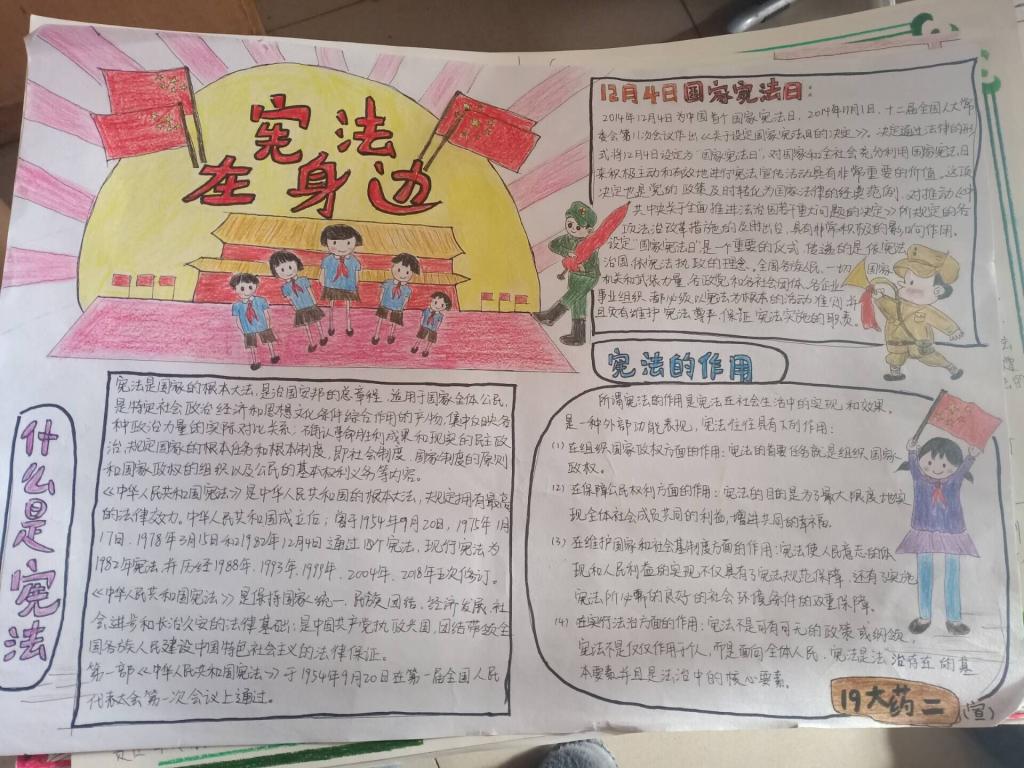 宪法
在身边
12月4日国家宪法日:
2014年12月4为中国首个国家宪法日. 2014年11月1日, 十二届全国人大常
委会第11次会议作出《关于设定国家宪法日的决定》, 决定通过法律的形
式将12月4日设定为“国家宪法日”, 对国家和全社会充分利用国家宪法日
来积极主动和有效地进行宪法宣传活动具有非常重要的价值. 这项
决定也是党的政策及时转化为国家法律的经典范例. 对推动《中
共中央关于全面推进法治国若干重大问题的决定》所规定的各
项法治改革措施的及时出台, 具有非常积极的影响作用.
设定“国家宪法日”是一个重要的仪式, 传递的是依宪法
治国, 依宪法执政的理念. 全国各族人民, 一切国家
机关和武装力量, 各政党和各社会团体, 各企业
事业组织, 都必须以宪法为根本的活动准则, 并
且负有维护宪法尊严, 保证宪法实施的职责.
什么是宪法
宪法是国家的根本大法, 是治国安邦的总章程, 适用于国家全体公民,
是特定社会政治经济和思想文化条件综合作用的产物, 集中反映各
种政治力量的实际对比关系, 确认革命胜利成果和现实的民主政
治, 规定国家的根本任务和根本制度, 即社会制度、国家制度的原则
和国家政权的组织以及公民的基本权利义务等内容.
《中华人民共和国宪法》是中华人民共和国的根本大法, 规定拥有最高
的法律效力. 中华人民共和国成立后, 曾于1954年9月20日, 1975年1月
17日、1978年3月15日和1982年12月4日通过四个宪法, 现行宪法为
1982年宪法, 并历经1988年、1993年、1999年、2004年、2018年五次修订.
《中华人民共和国宪法》是保持国家统一、民族团结、经济发展、社
会进步和长治久安的法律基础; 是中国共产党执政兴国, 团结带领全
国各族人民建设中国特色社会主义的法律保证.
第一部《中华人民共和国宪法》于1954年9月20日在第一届全国人民
代表大会第一次会议上通过.
宪法的作用
所谓宪法的作用是宪法在社会生活中的实现和效果.
是一种外部功能表现, 宪法往往具有下列作用:
(1) 在组织国家政权方面的作用: 宪法的首要任务就是组织国家
政权.
(2) 在保障公民权利方面的作用: 宪法的目的是为了最大限度地实
现全体社会成员共同的利益, 增进共同的幸福.
(3) 在维护国家和社会基制度方面的作用: 宪法使人民意志的体
现和人民利益的实现不仅具有了宪法规范保障, 还有了实施
宪法所必需的良好的社会环境条件的双重保障.
(4) 在实行法治方面的作用: 宪法不是可有可无的政策或纲领.
宪法不是仅仅作用于个人, 而是面向全体人民. 宪法是法治存在的基
本要素并且是法治中的核心要素.
19大药二
(宣)